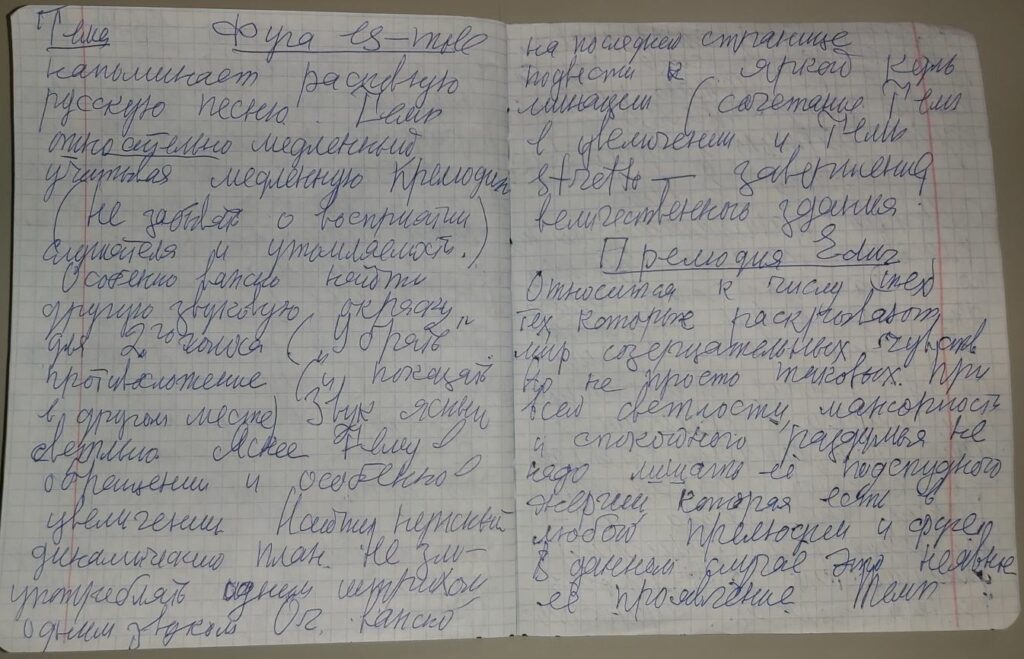 Тема Фуга es-moll
напоминает распевную
русскую песню. Темп
относительно медленный
учитывая медленную Прелюдию
(не забывать о восприятии
слушателя и утомляемость.)
Особенно важно найти
другую звуковую окраску
для 2го голоса ("Убрать"
противосложение (и показать
в другом месте) Звук ясный
светлый Яснее Тему в
обращении и особенно в
увеличении Найти нужный
динамический план. Не зло-
употреблять одним штрихом
одним звуком Оч. важно
на последней странице
подвести к яркой куль
минации (сочетание Темы
в увеличении и Темы
stretto — завершения
величественного здания
Прелюдия Edur
Относится к числу
тех которые раскрывают
мир созерцательных чувств
но не просто таковых. При
всей светлости, мажорность
и спокойного раздумья не
надо лишать её подспудного
энергии которая есть в
любой прелюдии и фуге
В данном случае это неявное
её проявление Темп